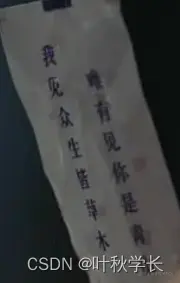 我见众生皆草木
唯有见你是青
CSDN @叶秋学长